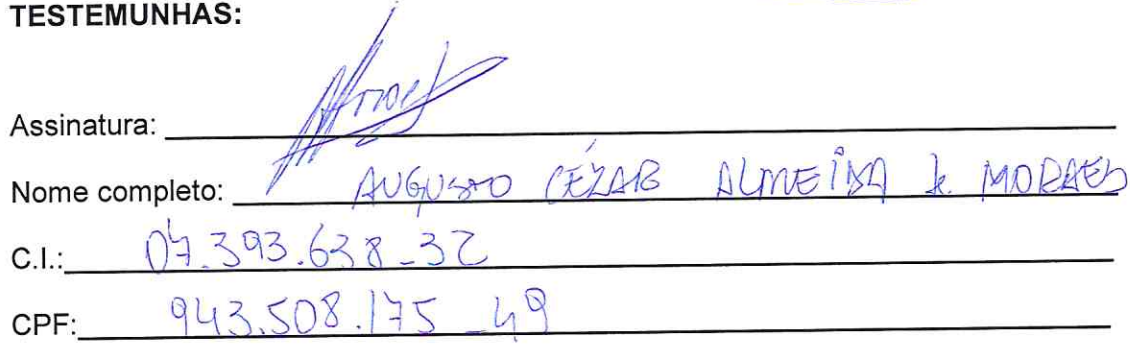 TESTEMUNHAS:
Assinatura:
Nome completo: AUGUSTO CÉZAR ALMEIDA de MORAES
C.I.: 07.393.638-32
CPF: 943.508.175-49